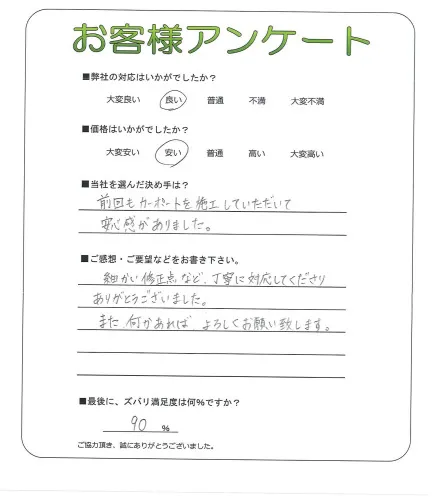 お客様アンケート
■弊社の対応はいかがでしたか？
大変良い 良い 普通 不満 大変不満
■価格はいかがでしたか？
大変安い 安い 普通 高い 大変高い
■当社を選んだ決め手は？
前回もカーポートを施工していただいて
安心感がありました。
■ご感想・ご要望などをお書き下さい。
細かい修正点など、丁寧に対応してくださり
ありがとうございました。
また、何かあれば よろしくお願い致します。
■最後に、ズバリ満足度は何%ですか？
90 %
ご協力頂き、誠にありがとうございました。